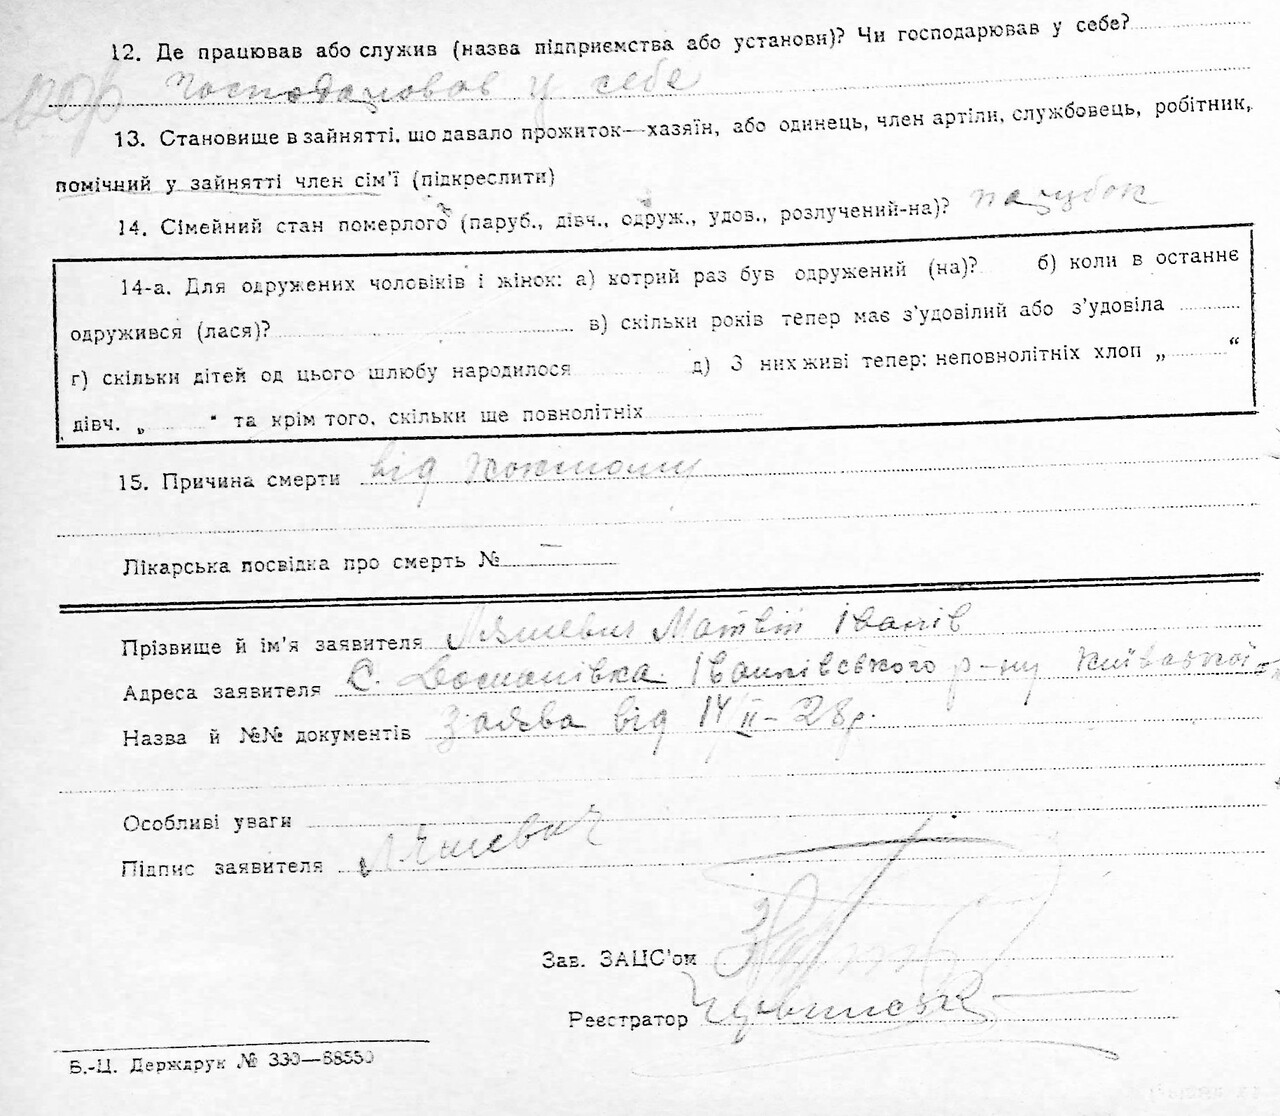 12. Де працював або служив (назва підприємства або установи)? Чи господарював у себе?
господарював у себе
13. Становище в зайнятті, що давало прожиток—хазяїн, або одинець, член артіли, службовець, робітник,
помічний у зайнятті член сім'ї (підкреслити)
14. Сімейний стан померлого (паруб., дівч., одруж., удов., розлучений-на)? парубок
14-а. Для одружених чоловіків і жінок: а) котрий раз був одружений (на)? б) коли в останнє
одружився (лася)? в) скільки років тепер має з'удовілий або з'удовіла
г) скільки дітей од цього шлюбу народилося д) З них живі тепер: неповнолітніх хлоп „ “
дівч. „ “ та крім того, скільки ще повнолітніх
15. Причина смерти від
Лікарська посвідка про смерть № —
Прізвище й ім'я заявителя Ляшевич Матвій Іванів
Адреса заявителя С. Іванківського р-ну Київської
Назва й №№ документів Заява від 14/II-28р.
Особливі уваги
Підпис заявителя Ляшевич
Зав. ЗАЦС'ом
Реєстратор
Б.-Ц. Держдрук № 330—68550